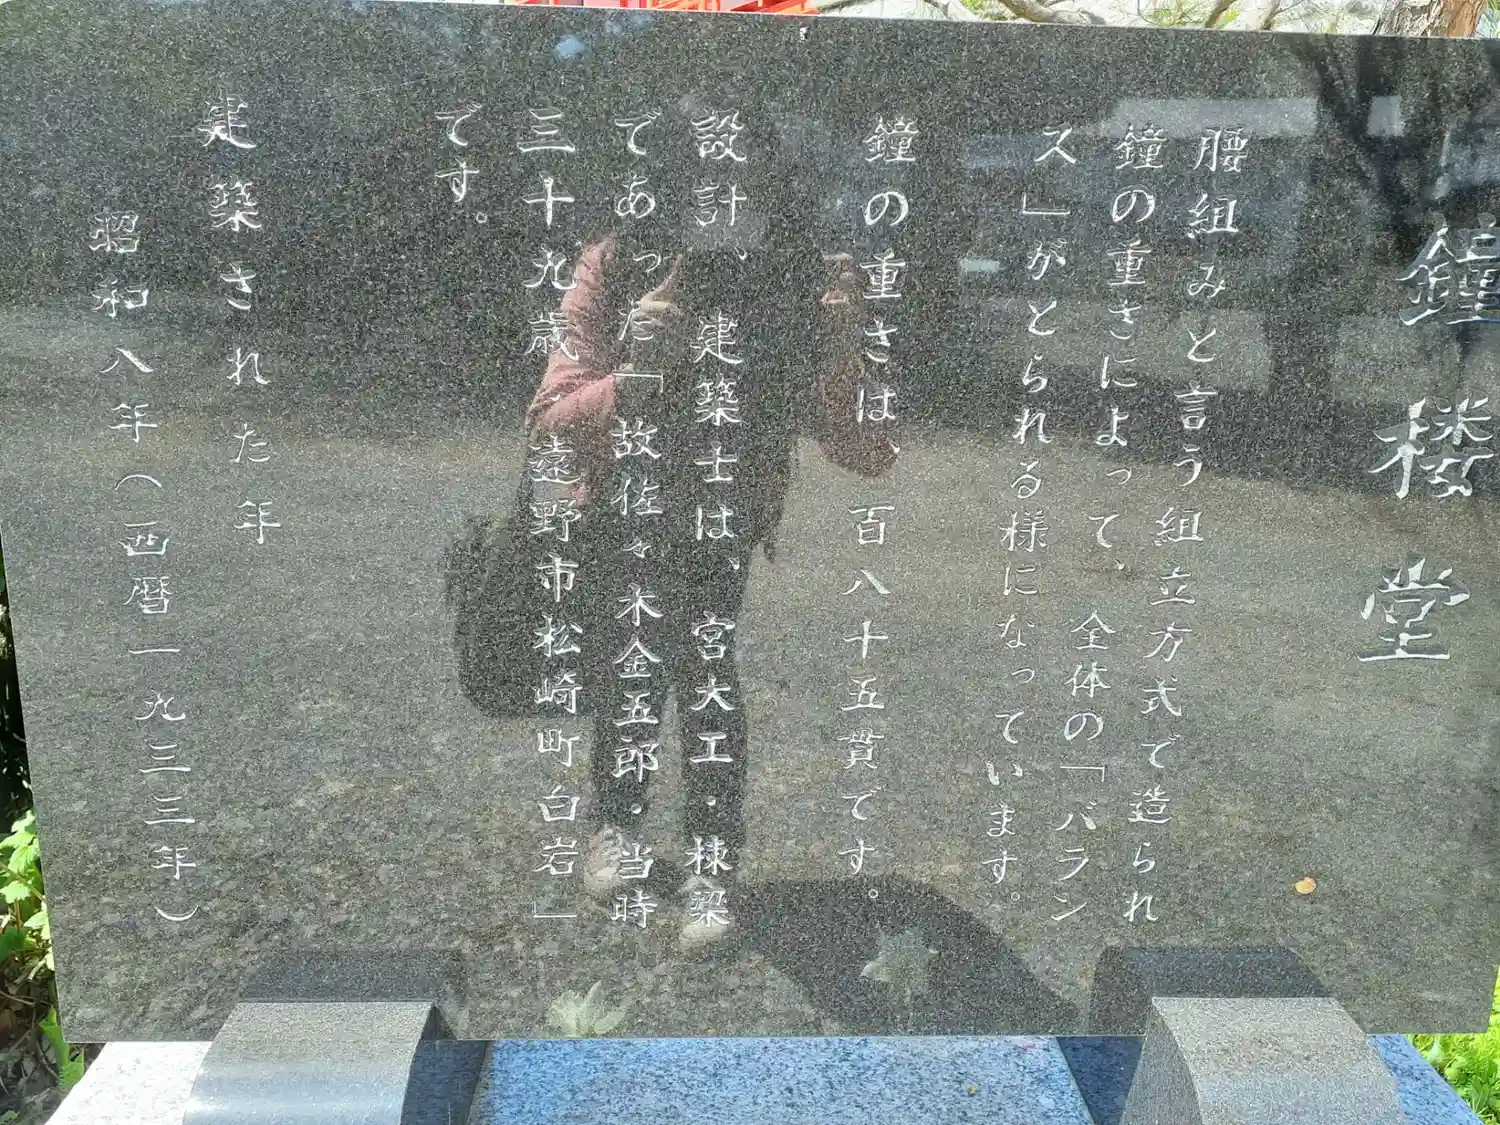 鐘楼堂
腰組みと言う組立方式で造られ
鐘の重さによって、全体の「バラン
ス」がとられる様になっています。
鐘の重さは、百八十五貫です。
設計、建築士は、宮大工・棟梁
であった「故佐々木金五郎・当時
三十九歳・遠野市松崎町白岩」
です。
建築された年
昭和八年(西暦一九三三年)